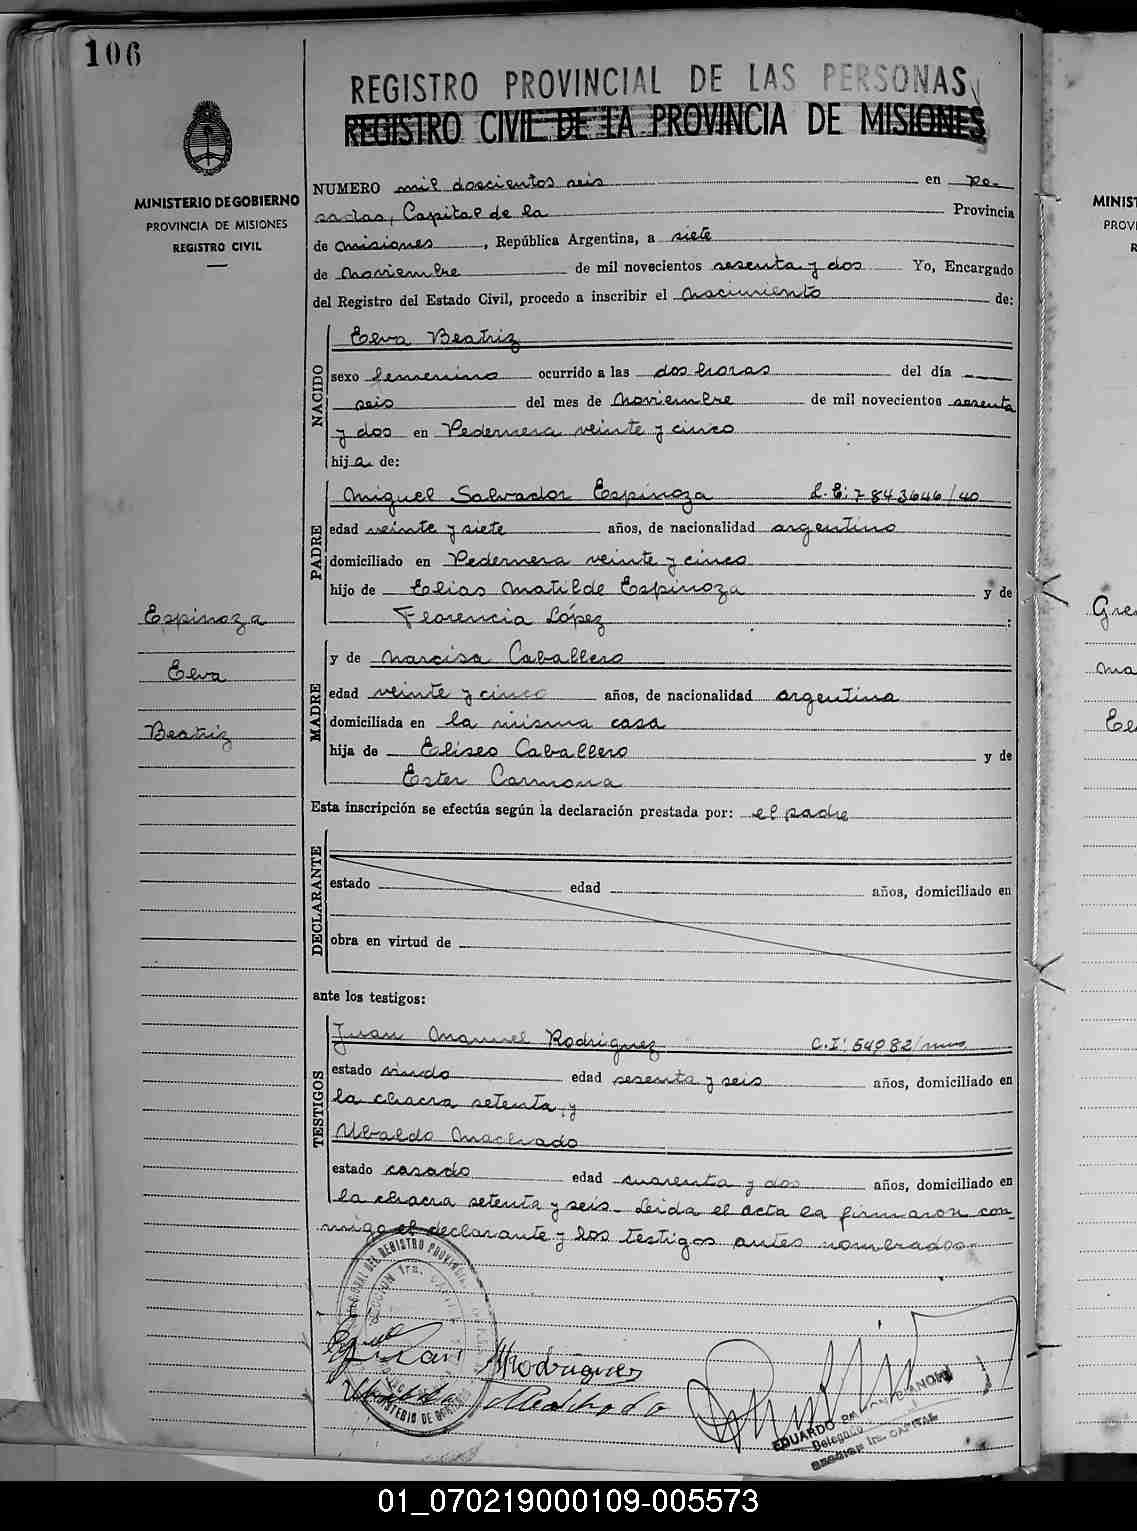 106
MINISTERIO DE GOBIERNO
PROVINCIA DE MISIONES
REGISTRO CIVIL
Espinoza
Elva
Beatriz
REGISTRO PROVINCIAL DE LAS PERSONAS
REGISTRO CIVIL DE LA PROVINCIA DE MISIONES
NUMERO mil doscientos seis en Po-
sadas, Capital de la Provincia
de misiones, República Argentina, a siete
de noviembre de mil novecientos sesenta y dos Yo, Encargado
del Registro del Estado Civil, procedo a inscribir el nacimiento de:
NACIDO
Elva Beatriz
sexo femenino ocurrido a las dos horas del día
seis del mes de noviembre de mil novecientos sesenta
y dos en Pedernera veinte y cinco
hija de:
PADRE
Miguel Salvador Espinoza L.E: 7843646/40
edad veinte y siete años, de nacionalidad argentino
domiciliado en Pedernera veinte y cinco
hijo de Elias Matilde Espinoza y de
Florencia López :
MADRE
y de Narcisa Caballero
edad veinte y cinco años, de nacionalidad argentina
domiciliada en la misma casa
hija de Eliseo Caballero y de
Ester Carmona
Esta inscripción se efectúa según la declaración prestada por: el padre
DECLARANTE
estado edad años, domiciliado en
obra en virtud de
ante los testigos:
TESTIGOS
Juan Manuel Rodriguez C.I: 54982/mns
estado viudo edad sesenta y seis años, domiciliado en
la chacra setenta, y
Ubaldo Machado
estado casado edad cuarenta y dos años, domiciliado en
la chacra setenta y seis. Leida el acta la firmaron con-
migo el declarante y los testigos antes nombrados.
Juan M Rodriguez
Ubaldo Machado
EDUARDO BIANCHI
Delegado
SECCION 1ra. CAPITAL
MINIST
PROVI
R
Gre
Ma
El
01_070219000109-005573